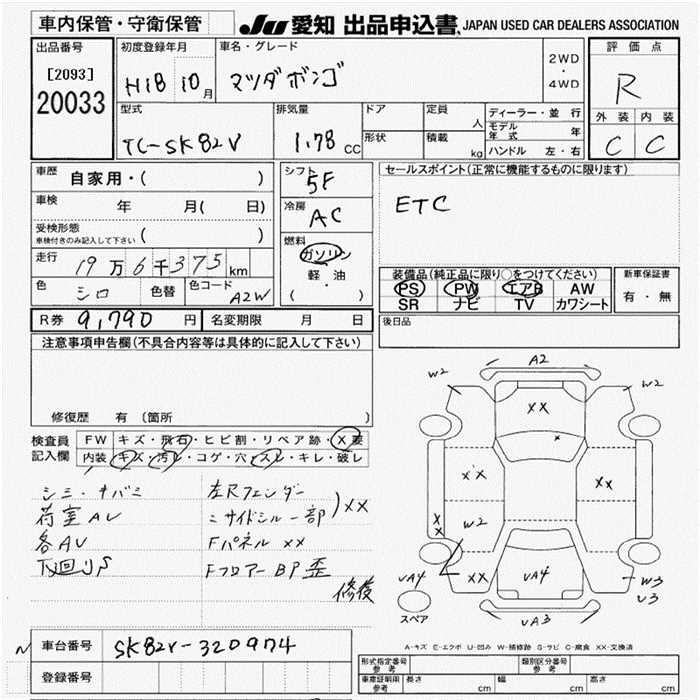 車内保管・守衛保管
JU 愛知 出品申込書 JAPAN USED CAR DEALERS ASSOCIATION
出品番号
[2093]
20033
初度登録年月
H18 10月
車名・グレード
マツダボンゴ
2WD
・
4WD
評価点
R
外装 内装
C C
型式
TC-SK82V
排気量
1.78 CC
ドア
形状
定員
人
積載
kg
ディーラー・並行
モデル年式 年
ハンドル 左・右
車歴
自家用・( )
車検
年 月( 日)
受検形態
車検付きのみ記入して下さい ( )
走行
19万6千375km
色
シロ
色替
色コード
A2W
シフト
5F
冷房
AC
燃料
ガソリン
軽・油
( ・ )
セールスポイント(正常に機能するものに限ります)
ETC
装備品(純正品に限り○をつけてください)
PS PW エアB AW
SR ナビ TV カワシート
新車保証書
有・無
R券 9,790 円
名変期限 月 日
後日品
注意事項申告欄(不具合内容等は具体的に記入して下さい)
修復歴 有 〔箇所 〕
検査員
記入欄
FW キズ・飛石・ヒビ割・リペア跡・X要
内装 キズ・汚レ・コゲ・穴・スレ・キレ・破レ
シミ・
荷室AU
各AU
下回りS
左Rフェンダー
〃サイドシル一部
)XX
Fパネル XX
Fフロアー BP 歪
修復
A2
W2
W2
XX
XX
XX
XX
W2
XX
UA4
UA4
W3
U3
UA3
スペア
A-キズ E-エクボ U-凹み W-補修跡 S-サビ C-腐食 XX-交換済
車台番号
SK82V-320974
登録番号
形式指定番号
参考
類別区分番号
参考
車庫証明用
参考
長さ cm
幅 cm
高さ cm